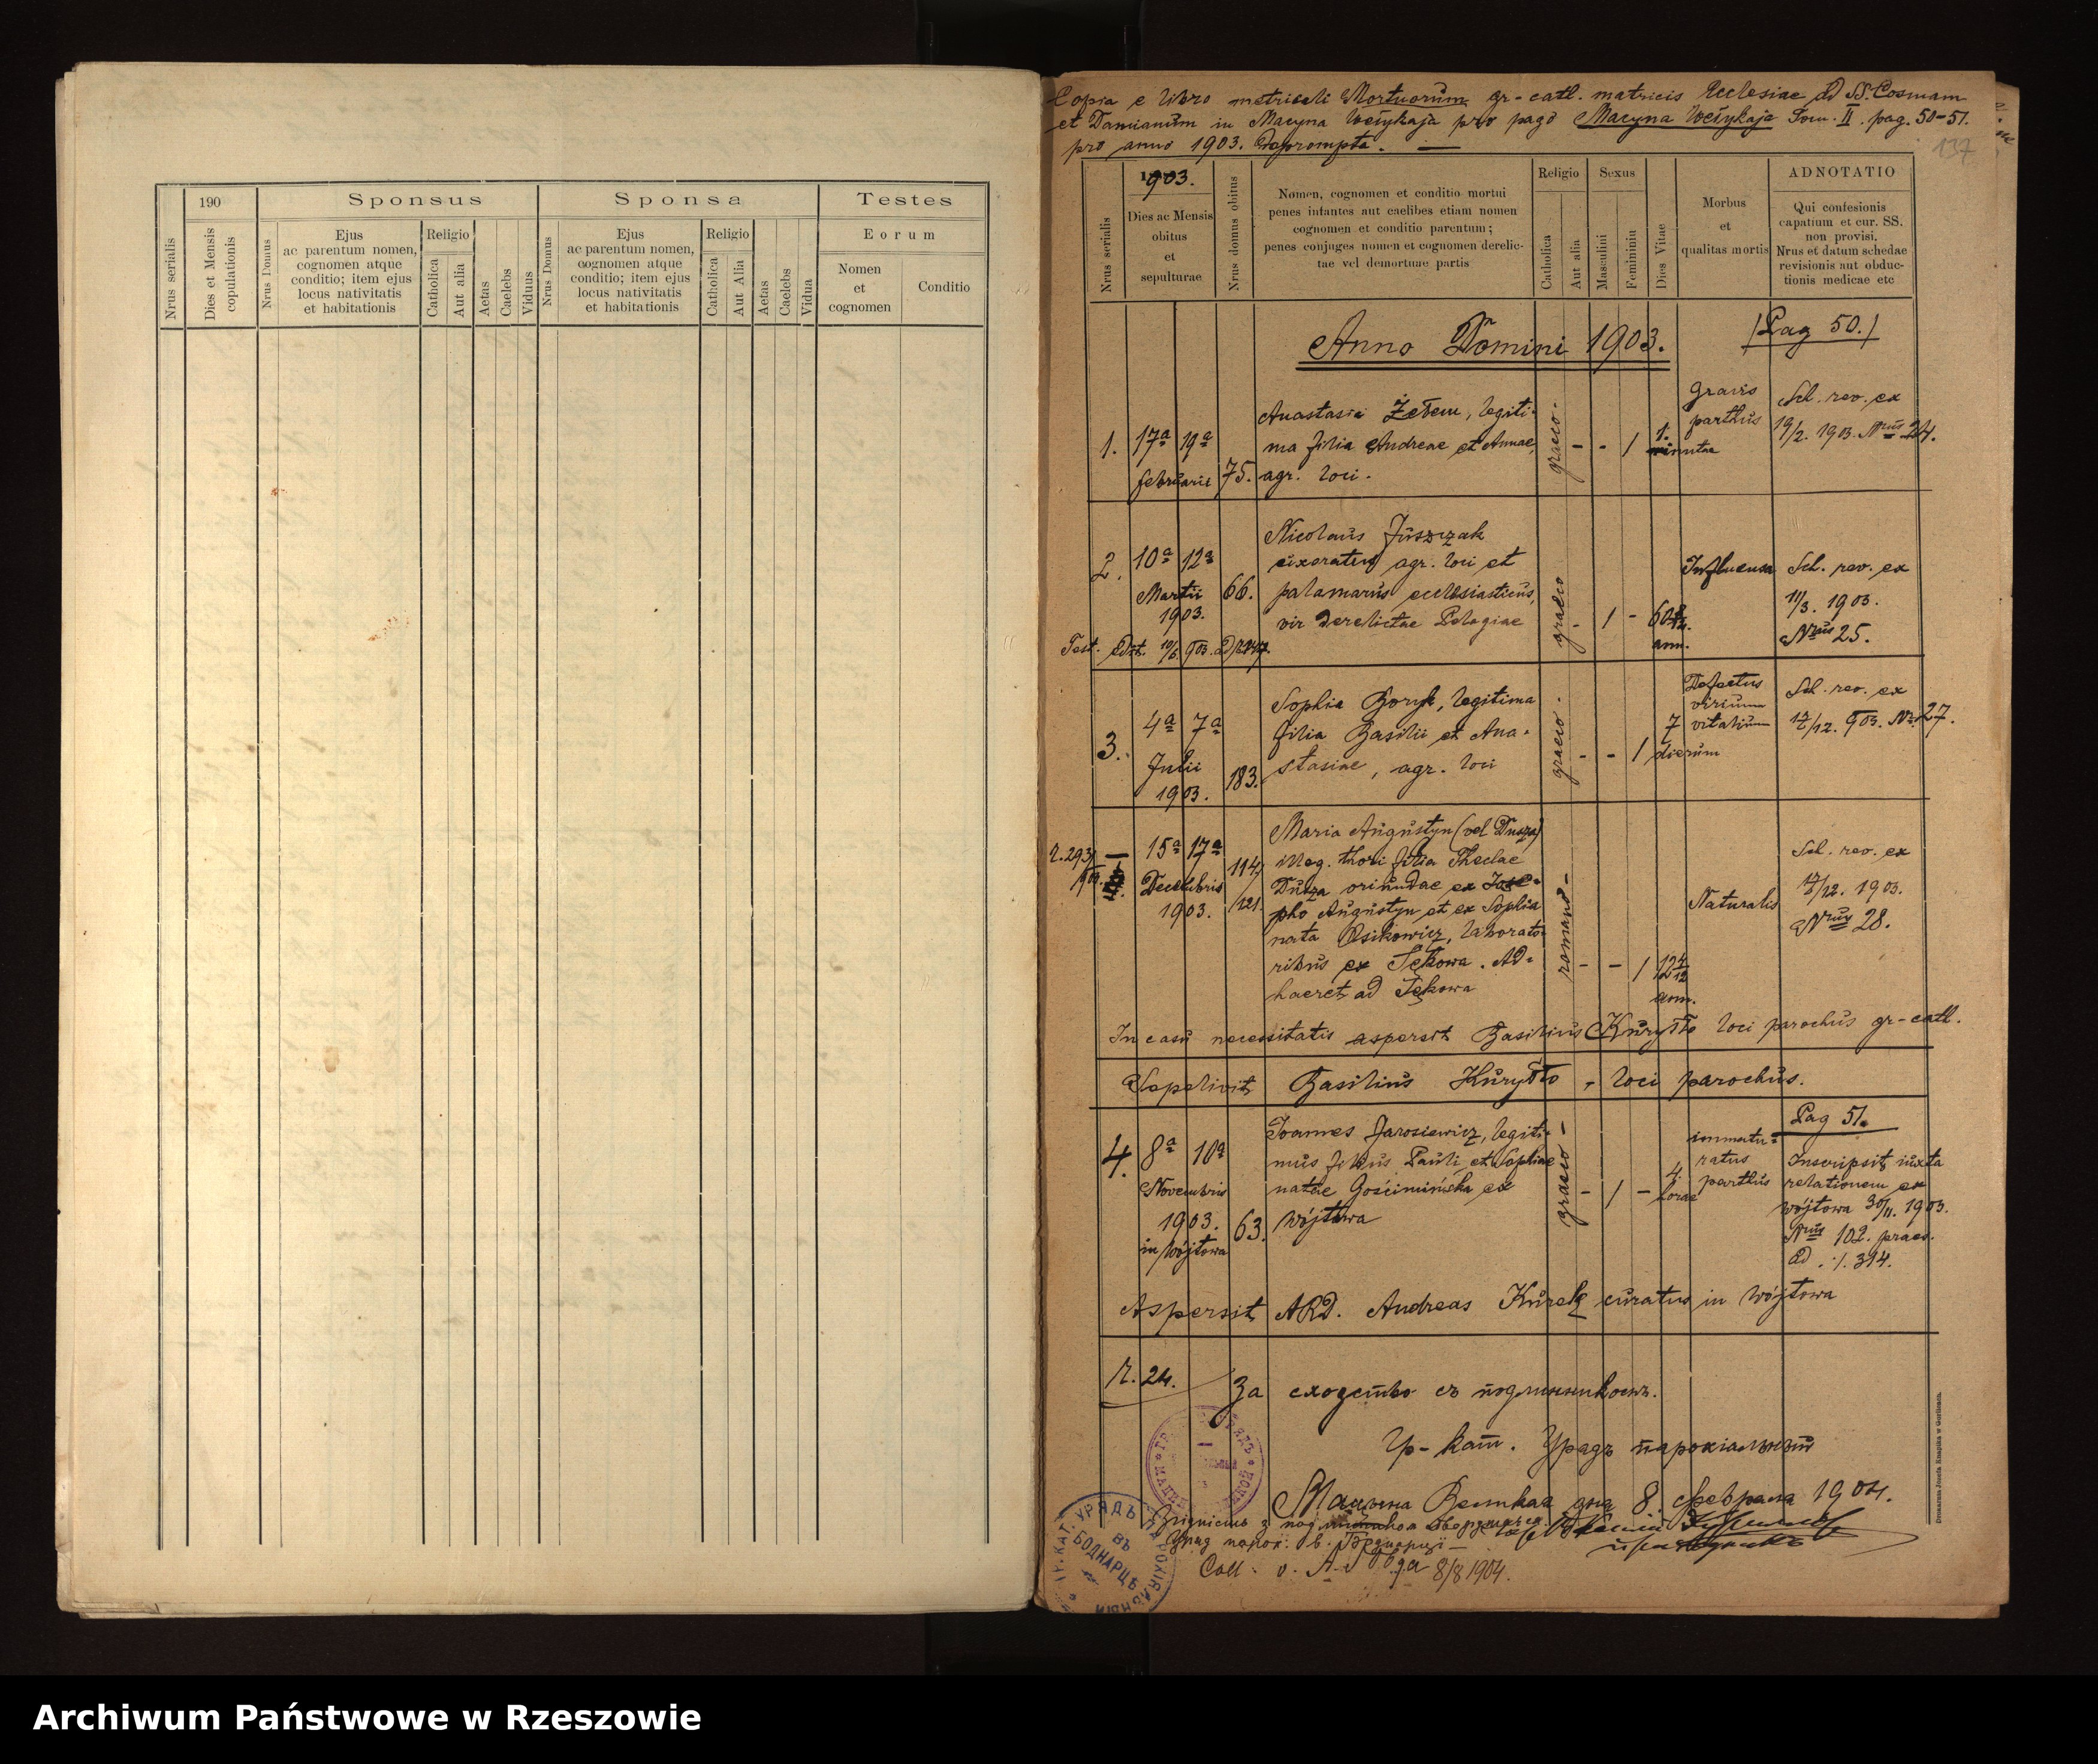 190
Sponsus
Sponsa
Testes
Nrus serialis
Dies et Mensis
copulationis
Nrus Domus
Ejus
ac parentum nomen,
cognomen atque
conditio; item ejus
locus nativitatis
et habitationis
Religio
Catholica
Aut alia
Aetas
Caelebs
Viduus
Nrus Domus
Ejus
ac parentum nomen,
cognomen atque
conditio; item ejus
locus nativitatis
et habitationis
Religio
Catholica
Aut Alia
Aetas
Caelebs
Vidua
Eorum
Nomen
et
cognomen
Conditio
Copia e libro metricali Mortuorum gr-cath. matricis Ecclesiae ad SS. Cosmam
et Damianum in Macyna Welykaja pro pago Macyna Welykaja Tom. II. pag. 50-51.
pro anno 1903. deprompta. —
137
Nrus serialis
1903.
Dies ac Mensis
obitus
et
sepulturae
Nrus domus obitus
Nomen, cognomen et conditio mortui
penes infantes aut caelibes etiam nomen
cognomen et conditio parentum;
penes conjuges nomen et cognomen derelic-
tae vel demortuae partis
Religio
Catholica
Aut alia
Sexus
Masculini
Feminini
Dies Vitae
Morbus
et
qualitas mortis
ADNOTATIO
Qui confesionis
capatium et cur. SS.
non provisi.
Nrus et datum schedae
revisionis aut obduc-
tionis medicae etc
Anno Domini 1903.
/Pag 50./
1. 17a 19a
februarii 75.
Anastasia Żełem, legiti-
ma filia Andreae et Annae,
agr. loci.
graeco -
- - 1
1.
minutae
gravis
parthus
Sch. rev. ex
19/2. 1903. Nrus 24.
2. 10a 12a
Martii
1903.
66.
Nicolaus Juszczak
uxoratus agr. loci et
palamarus ecclesiasticus,
vir derelictae Pelagiae
graeco
- 1 -
ann.
Influensa
Sch. rev. ex
11/3. 1903.
Nrus 25.
3. 4a 7a
Julii
1903.
183.
Sophia Boryk, legitima
filia Basilii et Ana-
stasiae, agr. loci
graeco -
- - 1
7
dierum
Defectus
virium
vitalium
Sch. rev. ex
Nr. 27.
r. 293
15a 17a
Decembris
1903.
114/
/121.
Maria Augustyn (vel Dusza)
illeg. thori filia Theclae
Dusza oriundae ex Jose-
pho Augustyn et ex Sophia
nata Osikowicz, laborato-
ribus ex Sękowa. Ad-
haeret ad Sękowa
romano -
- - 1
12 4/12
ann.
Naturalis
Sch. rev. ex
17/12. 1903.
Nrus 28.
In casu necessitatis aspersit Basilius Kuryłło loci parochus gr-cath.
Sepelivit Basilius Kuryłło, loci parochus.
Pag 51.
4. 8a 10a
Novembris
1903.
in Wójtowa
63.
Joannes Jarosiewicz, legiti-
mus filius Pauli et Sophiae
natae Gościmińska ex
Wójtowa
graeco -
- 1 -
4
horae
immatu-
ratus
parthus
Inscripsit iuxta
relationem ex
Wójtowa 30/11. 1903.
Nrus 102. praes.
ad ·/. 314.
Aspersit ARD. Andreas Kurek curatus in Wójtowa
r. 24.
За сходство съ подлинникомъ.
Гр-кат. Урядъ парохіальный
Мацына Велыкая дня 8. февраля 1904.
Coll. v. 8/8 1904.
УРЯДЪ ПАРОХІАЛЬНЫЙ
ВЪ
БОДНАРЦѢ
Drukarnia Józefa Knapika w Gorlicach.
Archiwum Państwowe w Rzeszowie